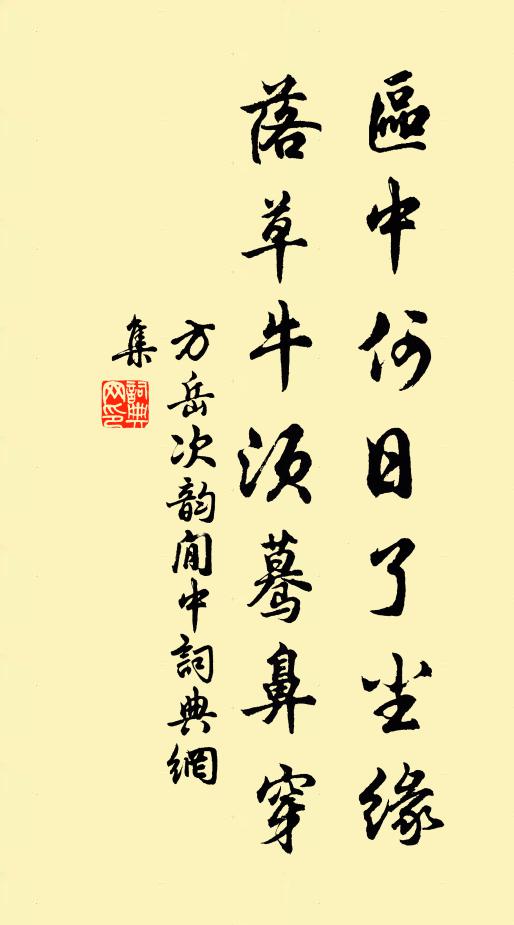 區中何日了尘緣
落草牛須蓦鼻穿
方岳次韵閒中詞典網
集
詞典網印